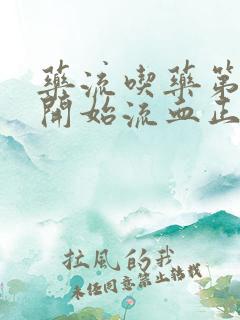 藥流喫藥第
開始流血正
拉風的我
未經同意禁止轉載